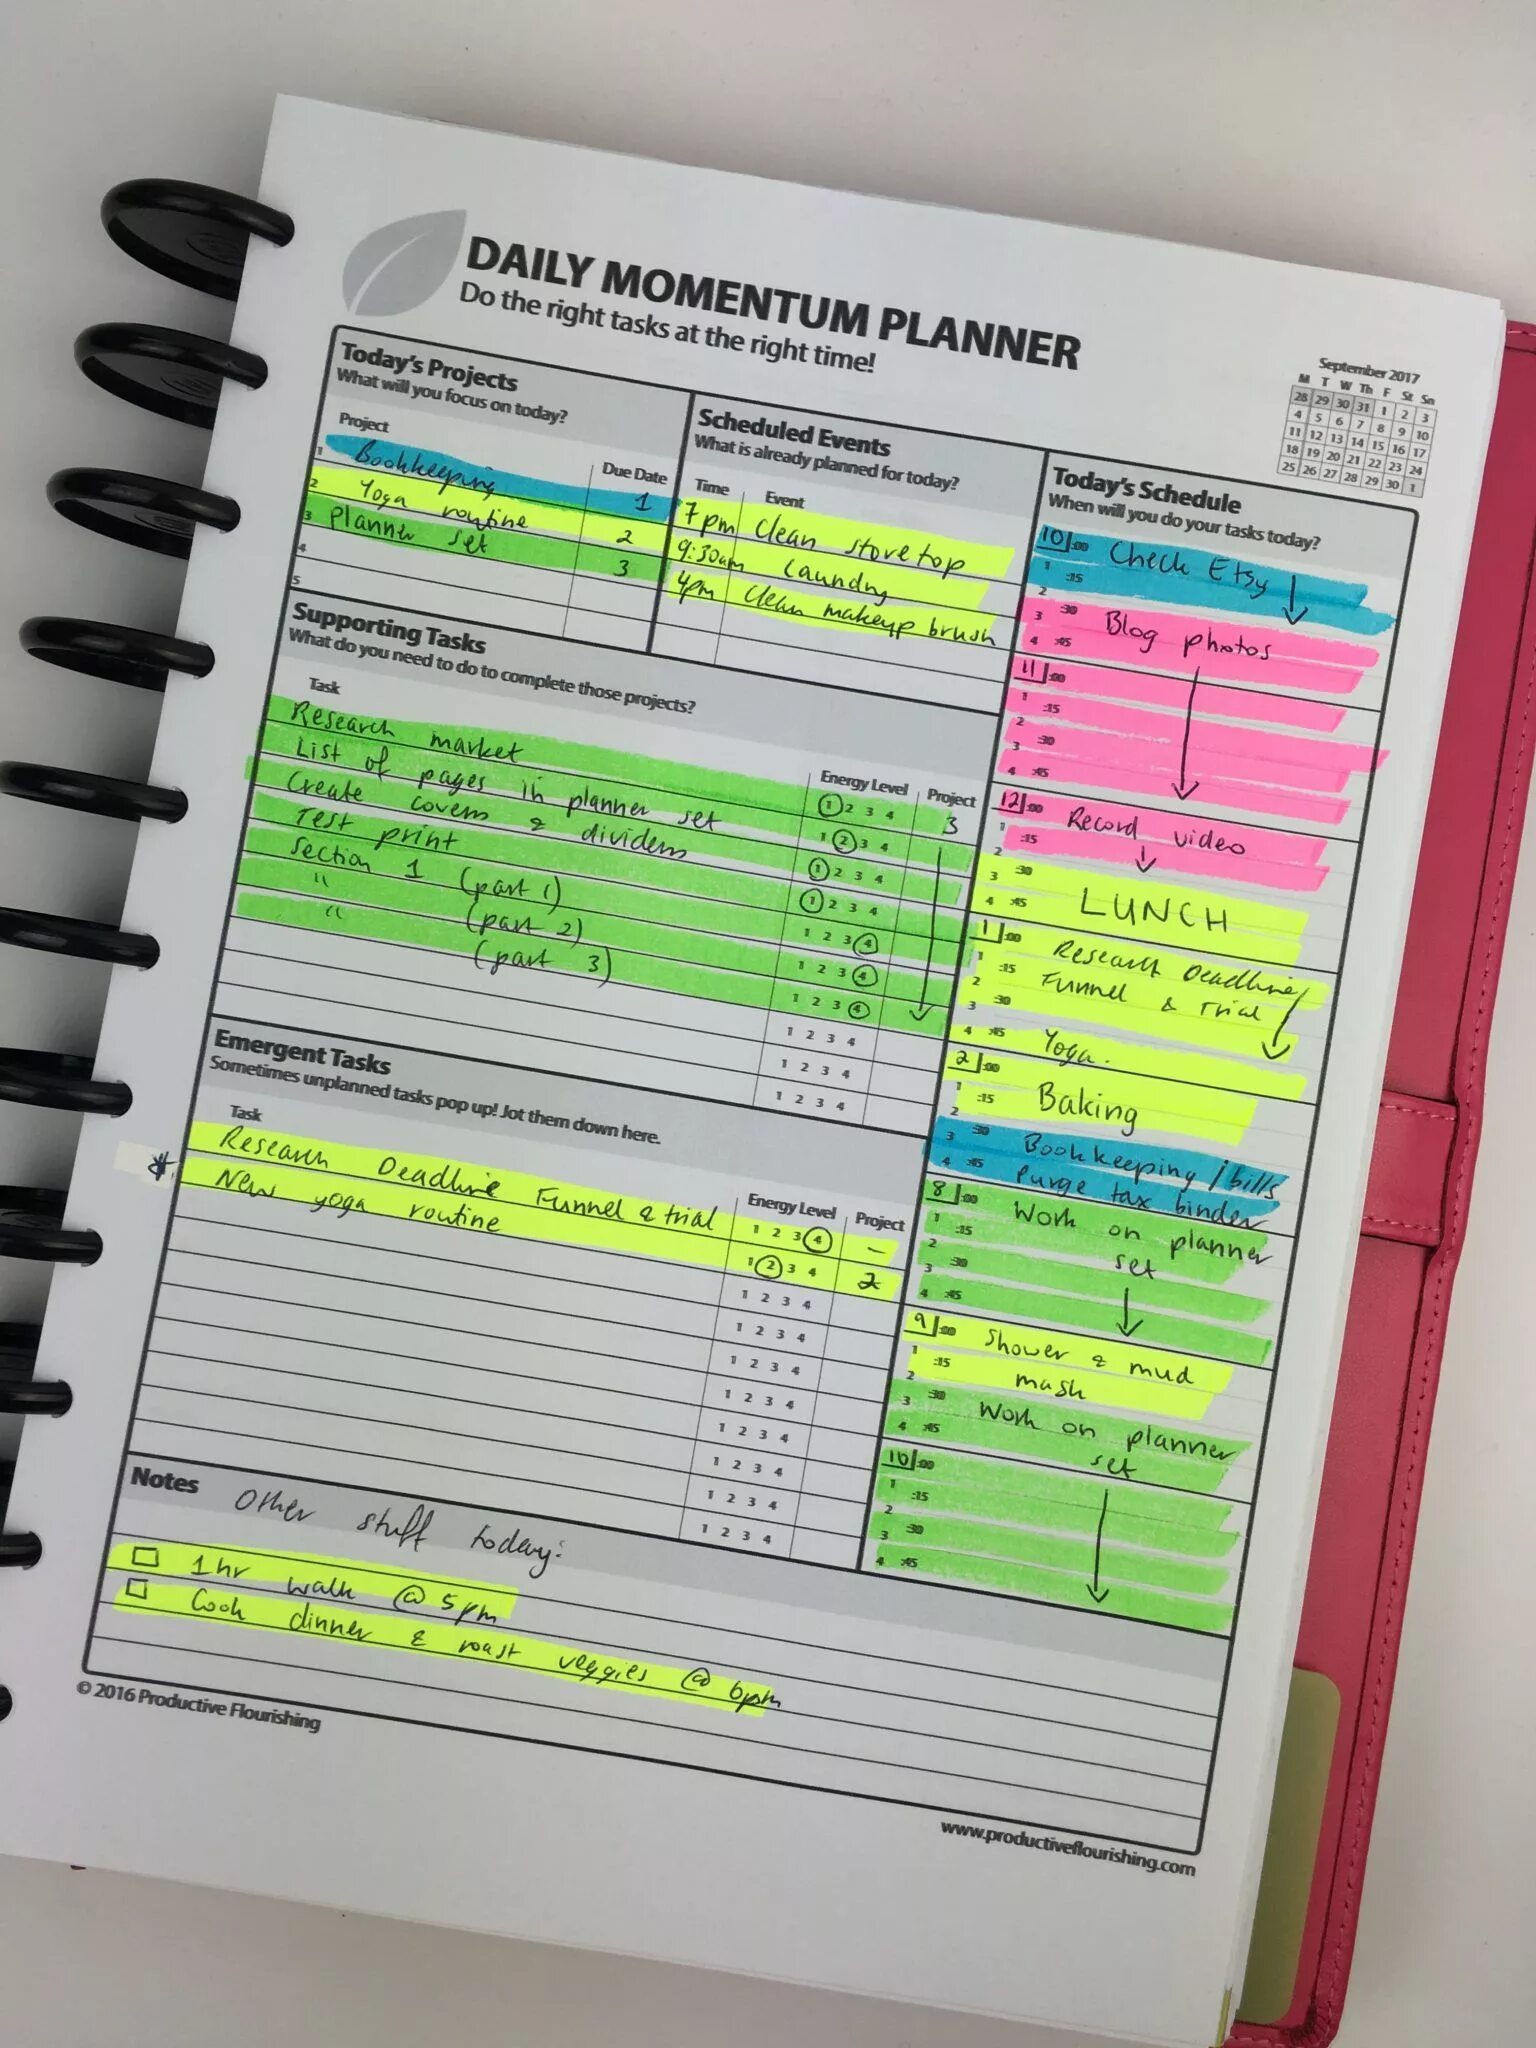 DAILY MOMENTUM PLANNER
Do the right tasks at the right time!
September 2017
M T W Th F St Sn
28 29 30 31 1 2 3
4 5 6 7 8 9 10
11 12 13 14 15 16 17
18 19 20 21 22 23 24
25 26 27 28 29 30 1
Today's Projects
What will you focus on today?
Project Due Date
1 Bookkeeping 1
2 Yoga routine 2
3 Planner set 3
4
5
Scheduled Events
What is already planned for today?
Time Event
7pm Clean stovetop
9:30am Laundry
4pm Clean makeup brush
Supporting Tasks
What do you need to do to complete those projects?
Task Energy Level Project
Research market 1 2 3 4 3
List of pages in planner set 1 2 3 4
Create covers & dividers 1 2 3 4
Test print 1 2 3 4
Section 1 (part 1) 1 2 3 4
" (part 2) 1 2 3 4
" (part 3) 1 2 3 4
1 2 3 4
1 2 3 4
1 2 3 4
Emergent Tasks
Sometimes unplanned tasks pop up! Jot them down here.
Task Energy Level Project
Research Deadline Funnel & trial 1 2 3 4 -
New yoga routine 1 2 3 4 2
1 2 3 4
1 2 3 4
1 2 3 4
1 2 3 4
1 2 3 4
1 2 3 4
1 2 3 4
1 2 3 4
Today's Schedule
When will you do your tasks today?
10 :00 Check Etsy
1 :15
2
3 :30 Blog photos
4 :45
11 :00
1 :15
2
3 :30
4 :45
12 :00 Record video
1 :15
2
3 :30
4 :45 LUNCH
1 :00 Research Deadline
1 :15 Funnel & trial
2
3 :30
4 :45 Yoga.
2 :00
1 :15 Baking
2
3 :30 Bookkeeping / bills
4 :45 Purge tax binder
8 :00 Work on planner
1 :15 set
2
3 :30
4 :45
9 :00 Shower & mud
1 :15 mask
2
3 :30 Work on planner
4 :45 set
10 :00
1 :15
2
3 :30
4 :45
Notes
Other stuff today:
1hr walk @ 5pm
Cook dinner & roast veggies @ 6pm
© 2016 Productive Flourishing
www.productiveflourishing.com